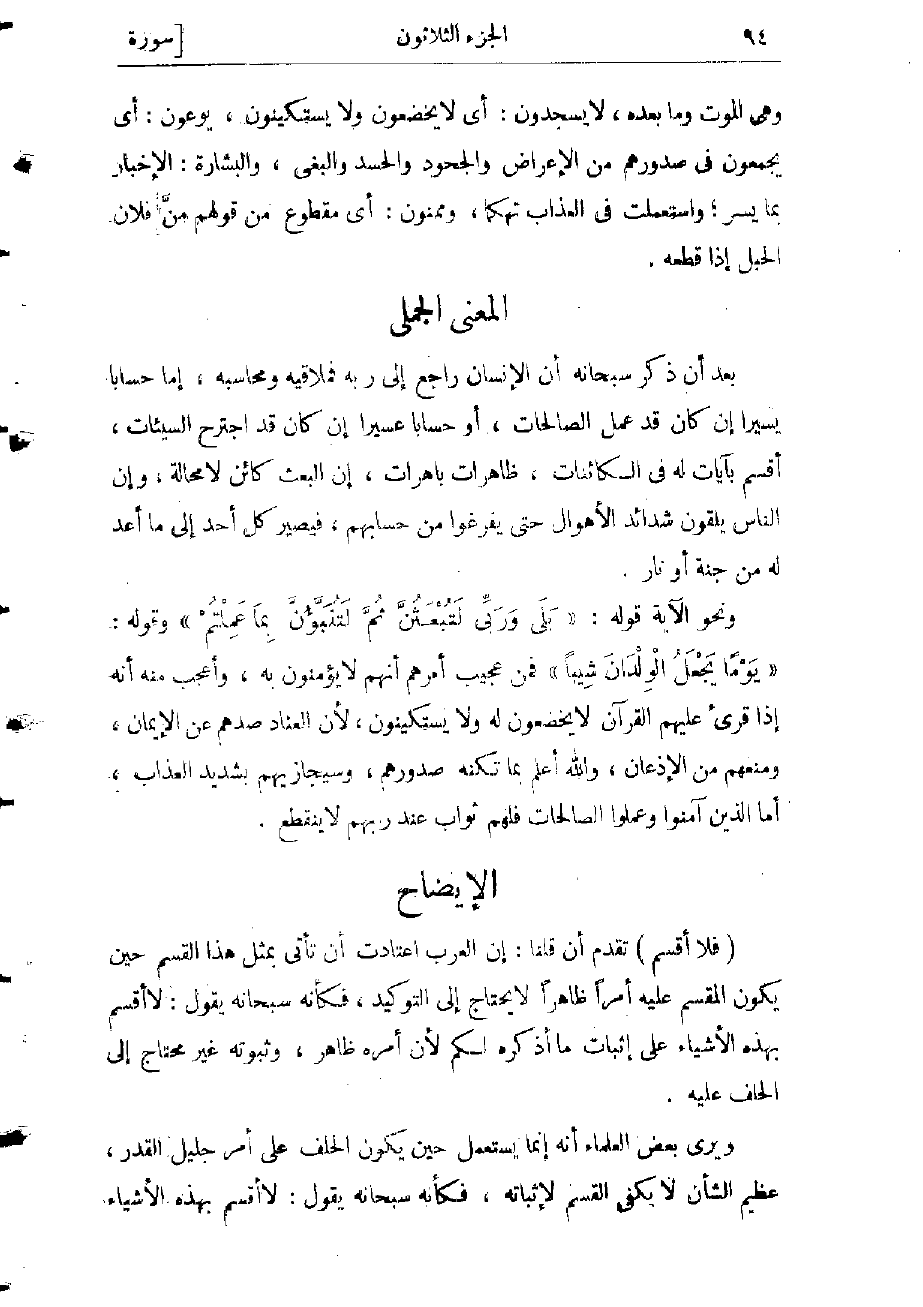 ٩٤
الجزء الثلاثون
[سورة
وهى الموت وما بعده ، لا يسجدون : أى لا يخضعون ولا يستكينون ، يوعون : أى
يجمعون فى صدورهم من الإعراض والجحود والحسد والبغى ، والبشارة : الإخبار
بما يسر ؛ واستعملت فى العذاب تهكما ، وممنون : أى مقطوع من قولهم منَّ فلان
الحبل إذا قطعه .
المعنى الجملى
بعد أن ذكر سبحانه أن الإنسان راجع إلى ربه فملاقيه ومحاسبه ، إما حسابا
يسيرا إن كان قد عمل الصالحات ، أو حسابا عسيرا إن كان قد اجترح السيئات ،
أقسم بآيات له فى الكائنات ، ظاهرات باهرات ، إن البعث كائن لا محالة ، وإن
الناس يلقون شدائد الأهوال حتى يفرغوا من حسابهم ، فيصير كل أحد إلى ما أعد
له من جنة أو نار .
ونحو الآية قوله : « بَلَى وَرَبِّى لَتُبْعَثُنَّ ثُمَّ لَتُنَبَّؤُنَّ بِمَا عَمِلْتُمْ » وقوله :
« يَوْمًا يَجْعَلُ الْوِلْدَانَ شِيباً » فمن عجيب أمرهم أنهم لا يؤمنون به ، وأعجب منه أنه
إذا قرئ عليهم القرآن لا يخضعون له ولا يستكينون ، لأن العناد صدهم عن الإيمان ،
ومنعهم من الإذعان ، والله أعلم بما تكنه صدورهم ، وسيجازيهم بشديد العذاب ،
أما الذين آمنوا وعملوا الصالحات فلهم ثواب عند ربهم لا ينقطع .
الإيضاح
( فلا أقسم ) تقدم أن قلنا : إن العرب اعتادت أن تأتى بمثل هذا القسم حين
يكون المقسم عليه أمراً ظاهراً لا يحتاج إلى التوكيد ، فكأنه سبحانه يقول : لا أقسم
بهذه الأشياء على إثبات ما أذكره لكم لأن أمره ظاهر ، وثبوته غير محتاج إلى
الحلف عليه .
ويرى بعض العلماء أنه إنما يستعمل حين يكون الحلف على أمر جليل القدر ،
عظيم الشأن لا يكفى القسم لإثباته ، فكأنه سبحانه يقول : لا أقسم بهذه الأشياء